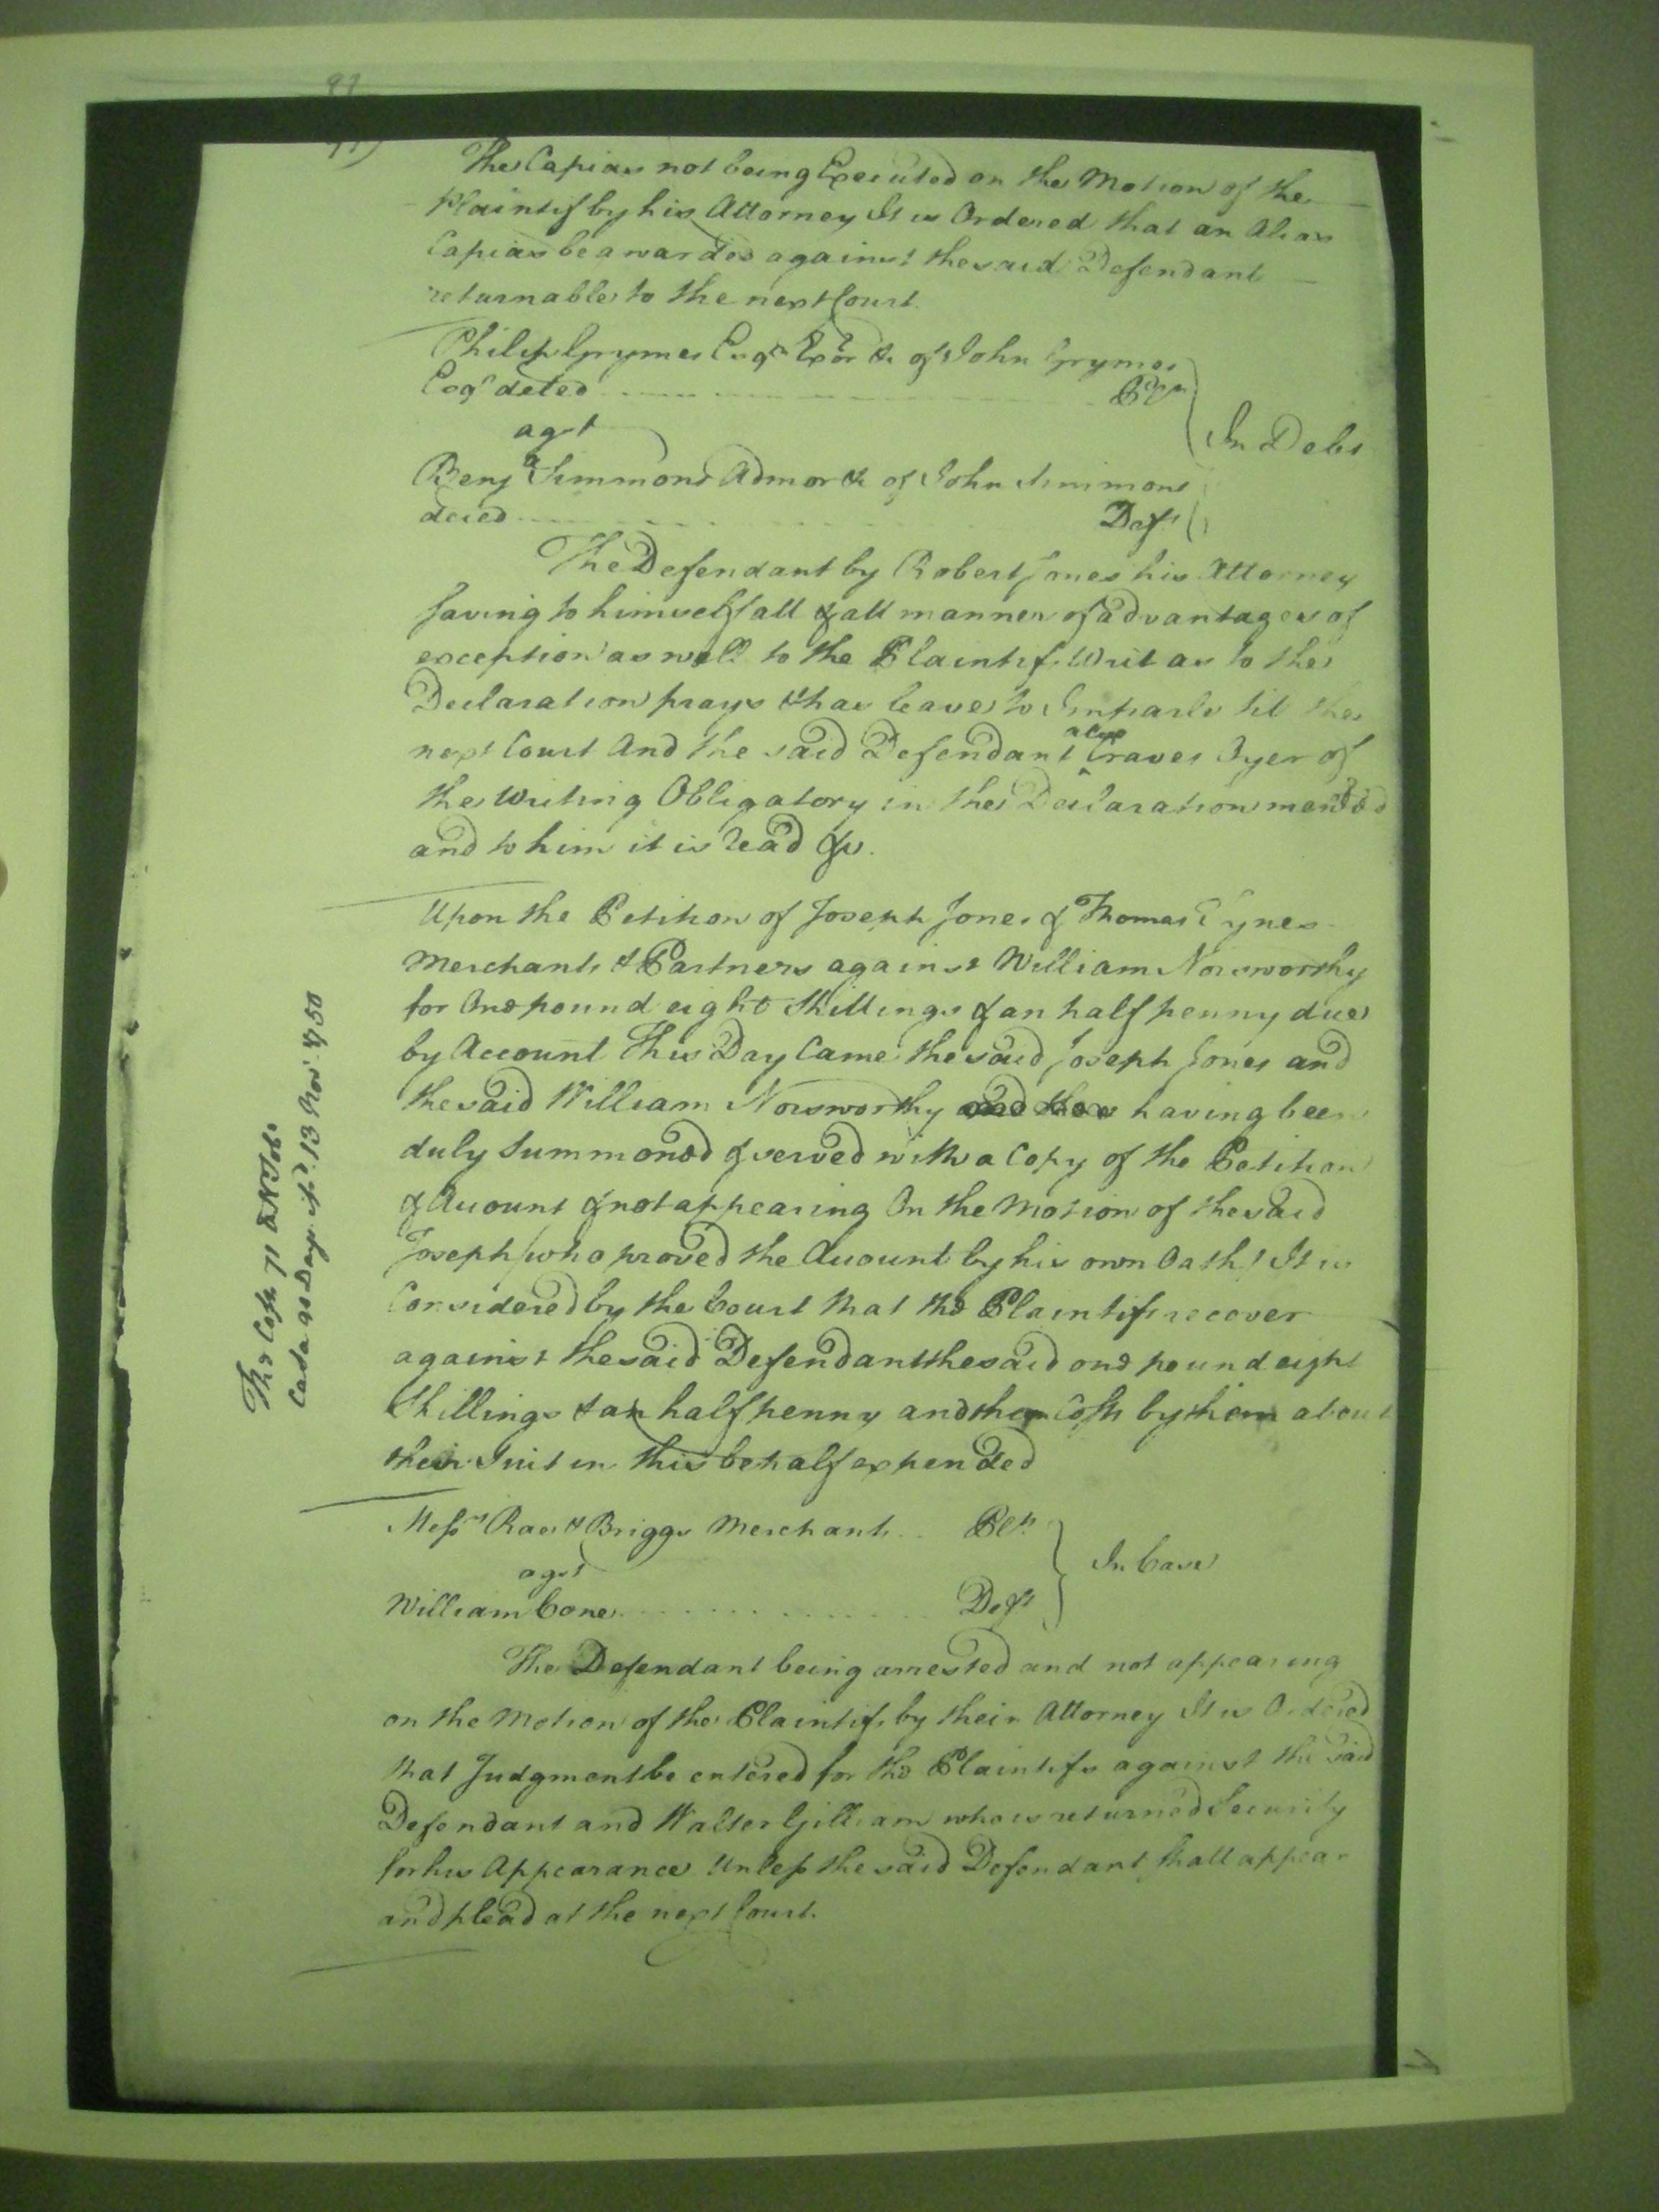 97
The Capias not being Executed on the Motion of the
Plaintif by his Attorney It is Ordered that an Alias
Capias be awarded against the said Defendant
returnable to the next Court.
Philip Grymes Esqr Exor &c of John Grymes
Esqr deced Plt
agt
In Debt
Benja Simmons Admor &c of John Simmons
deced Deft
The Defendant by Robert Jones his Attorney
saving to himself all & all manner of advantages of
exception as well to the Plaintifs Writ as to the
Declaration prays & has leave to Imparle til the
next Court And the said Defendant also Craves Oyer of
the Writing Obligatory in the Declaration mentd
and to him it is read &c.
Upon the Petition of Joseph Jones & Thomas Tynes
Merchants & Partners against William Norsworthy
for One pound eight Shillings & an half penny due
by Account This Day Came the said Joseph Jones and
the said William Norsworthy having been
duly Summoned & served with a Copy of the Petition
& Account & not appearing On the Motion of the said
Joseph (who proved the Account by his own Oath) It is
Considered by the Court that the Plaintifs recover
against the said Defendant the said one pound eight
Shillings & an half penny and their Costs by them about
their Suit in this behalf expended
The Costs 71 lb NTob:
Cada as Day 13 Nov: 1750
Messrs Rae & Briggs Merchants Plts
agst
In Case
William Cone Deft
The Defendant being arrested and not appearing
on the Motion of the Plaintifs by their Attorney It is Ordered
that Judgment be entered for the Plaintifs against the said
Defendant and Walter Gilliam who is returned Security
for his Appearance Unless the said Defendant shall appear
and plead at the next Court.